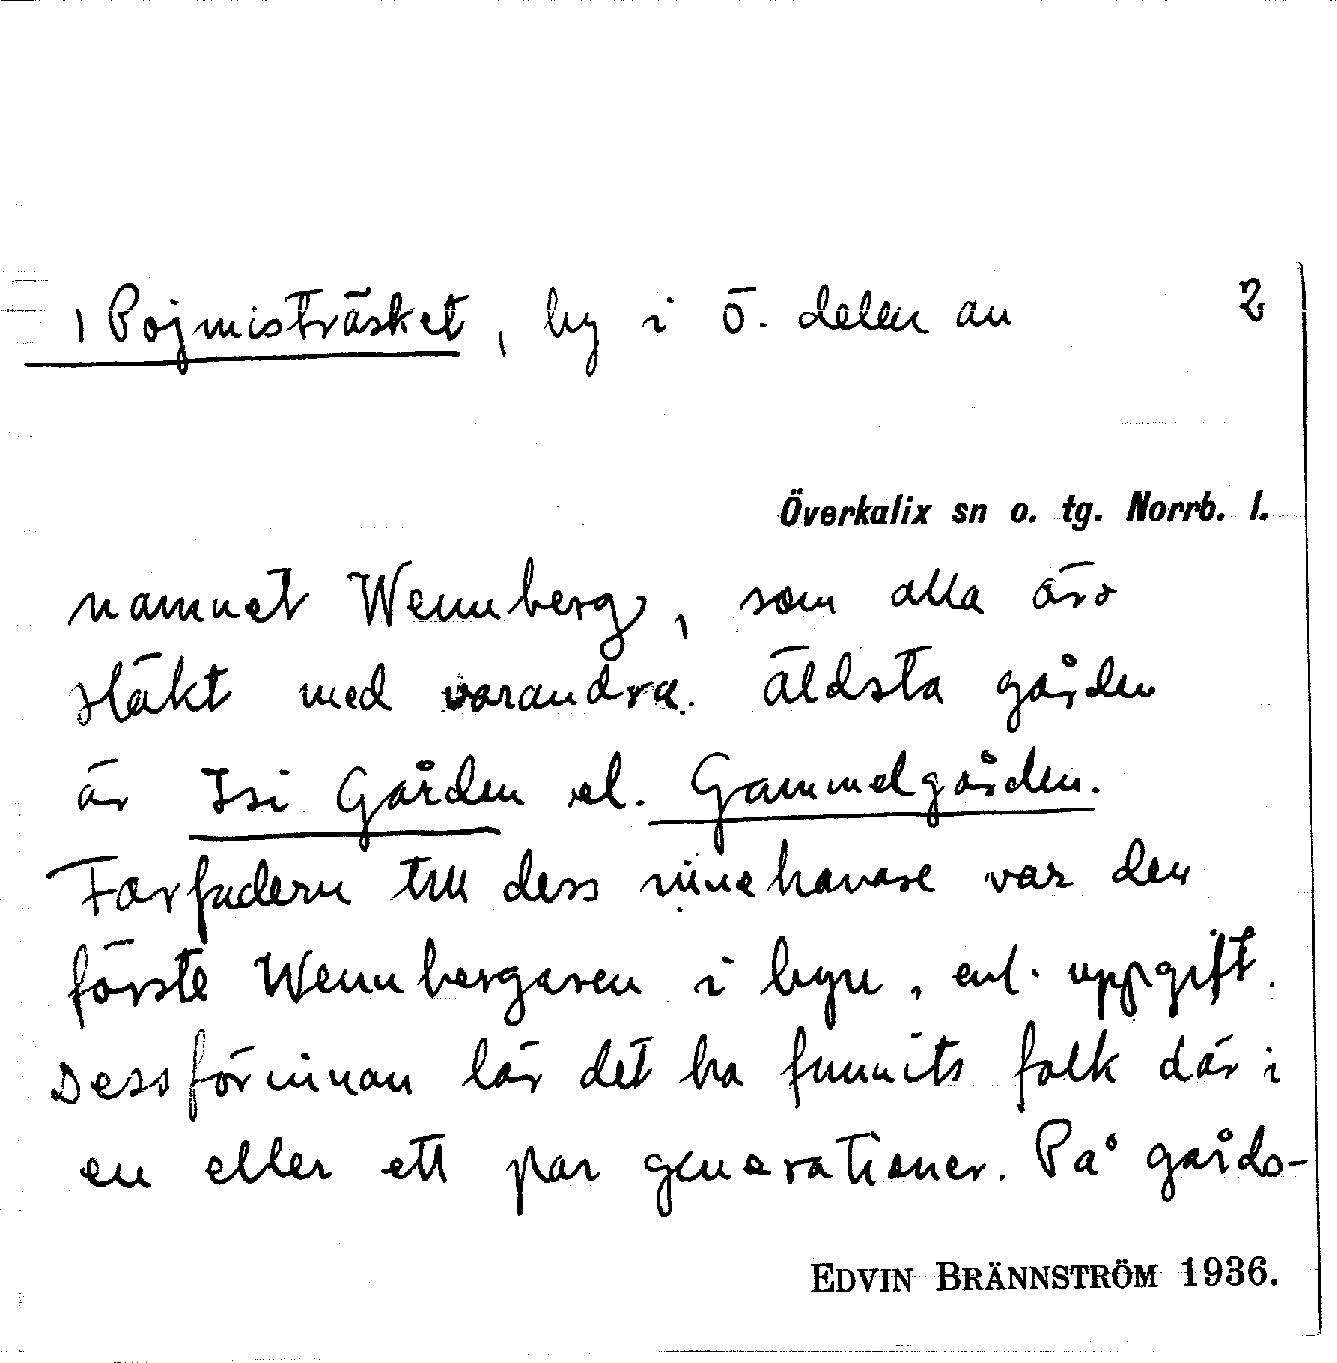 1 Pojmisträsket, by i ö. delen av 2
Överkalix sn o. tg. Norrb. l.
namnet Wennberg, som alla äro
släkt med varandra. Äldsta gården
är Isi Gården el. Gammelgården.
Farfadern till dess innehavare var den
förste Wennbergaren i byn, enl. uppgift.
Dessförinnan lär det ha funnits folk där i
en eller ett par generationer. På gårds-
EDVIN BRÄNNSTRÖM 1936.